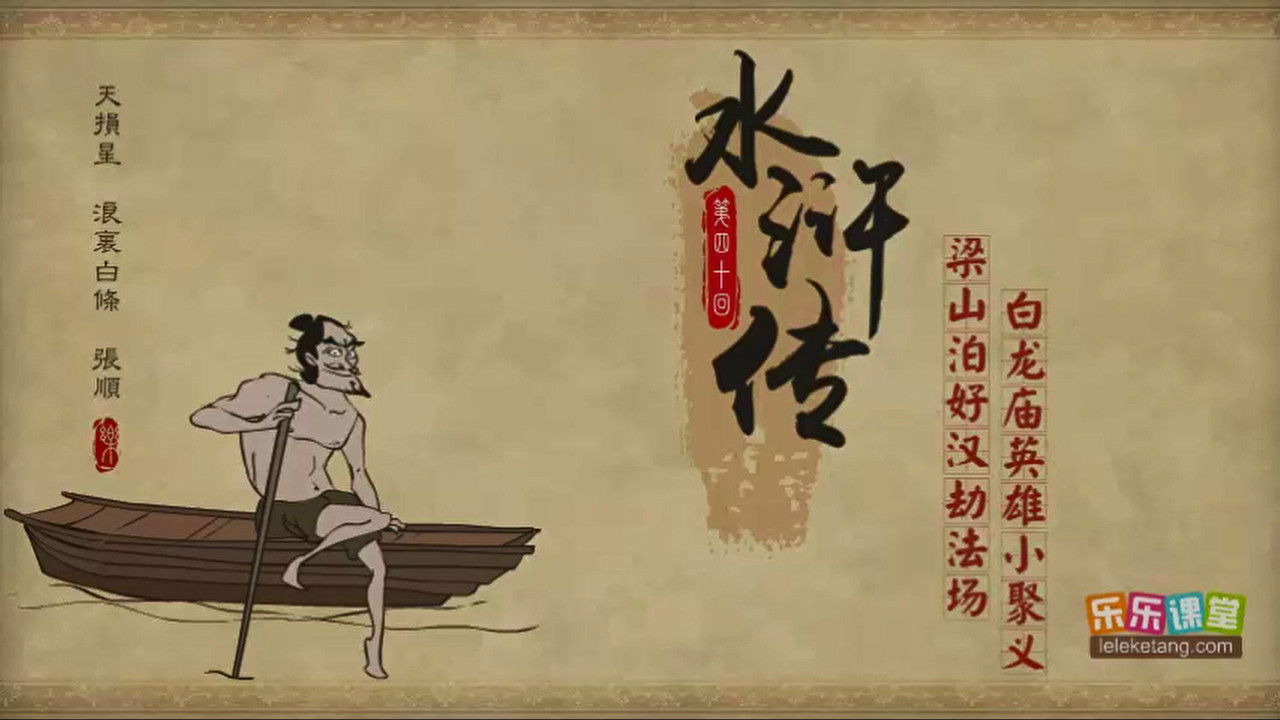 天損星 浪裏白條 張順
樂
水浒传
第四十回
梁山泊好汉劫法场
白龙庙英雄小聚义
乐乐课堂
leleketang.com